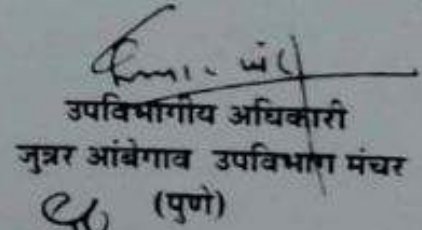 उपविभागीय अधिकारी
जुन्नर आंबेगाव उपविभाग मंचर
(पुणे)